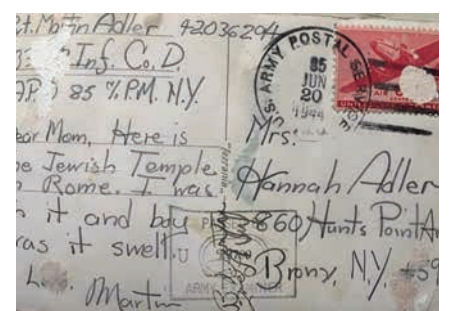 t. Martin Adler 42036294
Inf. Co. D.
AP 85 % P.M. N.Y.
ear Mom, Here is
e Jewish Temple
Rome. I was
it and boy
as it swell.
Martin
U.S. ARMY POSTAL SERVICE
85
JUN
20
1944
Mrs.
Hannah Adler
860 Hunts Point A
Bronx, N.Y. 59
ARMY